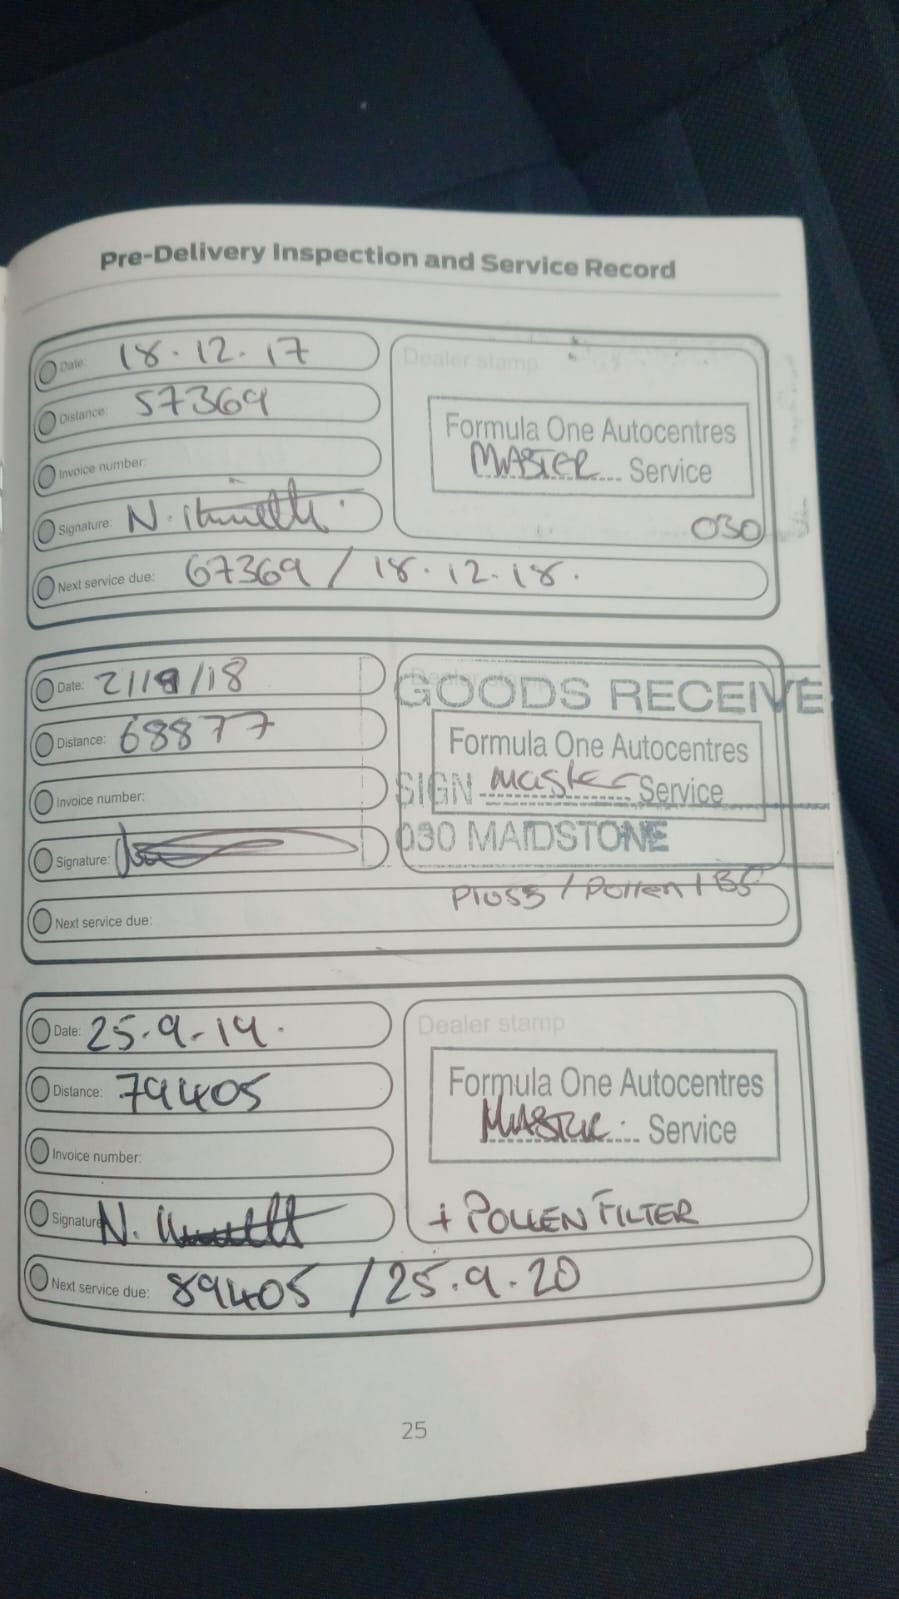 Pre-Delivery Inspection and Service Record
Date: 18.12.17
Dealer stamp
Distance: 57369
Formula One Autocentres
MASTER Service
Invoice number:
Signature: N.
030
Next service due: 67369 / 18.12.18.
Date: /18
GOODS RECEIVE
Distance: 68877
Formula One Autocentres
Invoice number:
SIGN Master Service
Signature:
030 MAIDSTONE
/ Pollen /
Next service due:
Date: 25.9.19.
Dealer stamp
Distance: 79405
Formula One Autocentres
MASTER Service
Invoice number:
Signature N.
+ POLLEN FILTER
Next service due: 89405 / 25.9.20
25